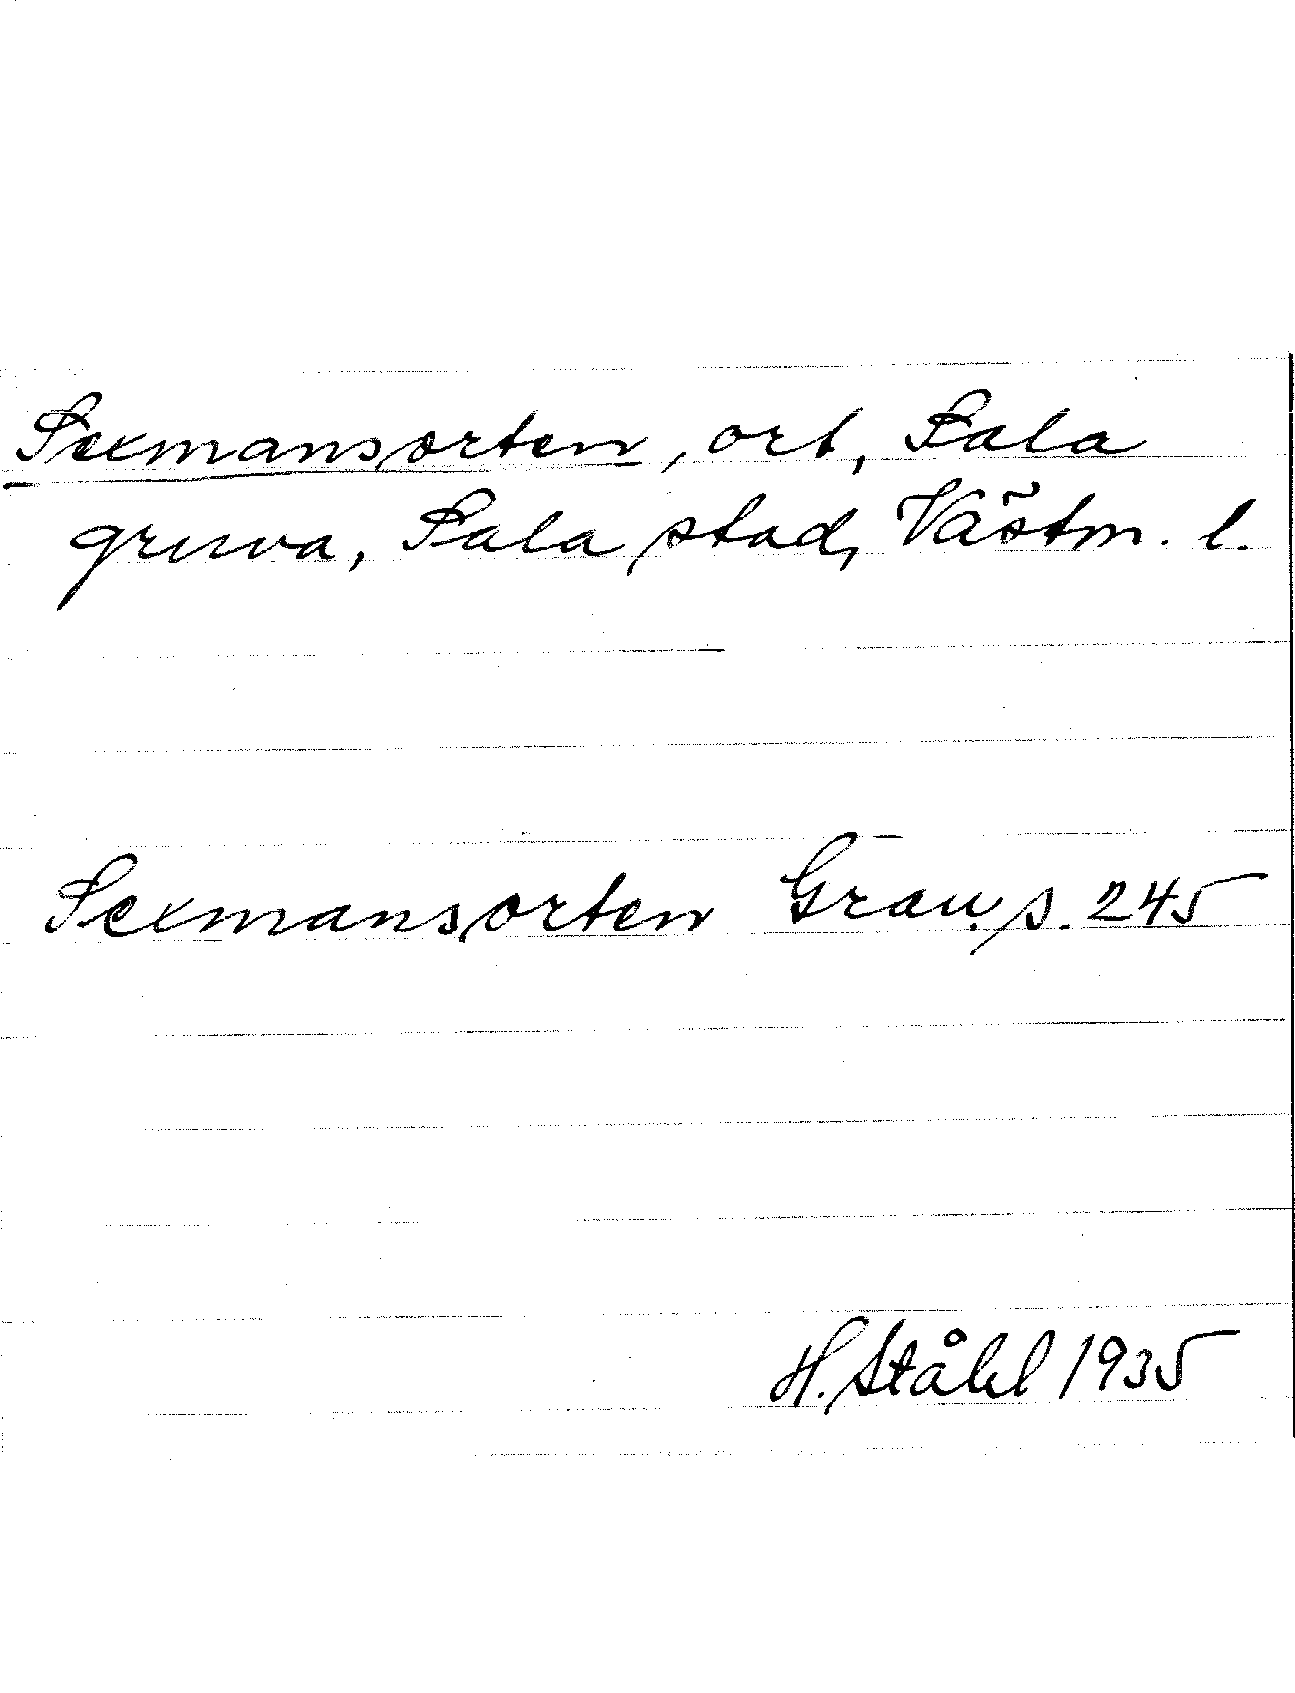 Sexmansorten, ort, Sala
gruva, Sala stad, Västm. l.
Sexmansorten Grau. s. 245
H. Ståhl 1935